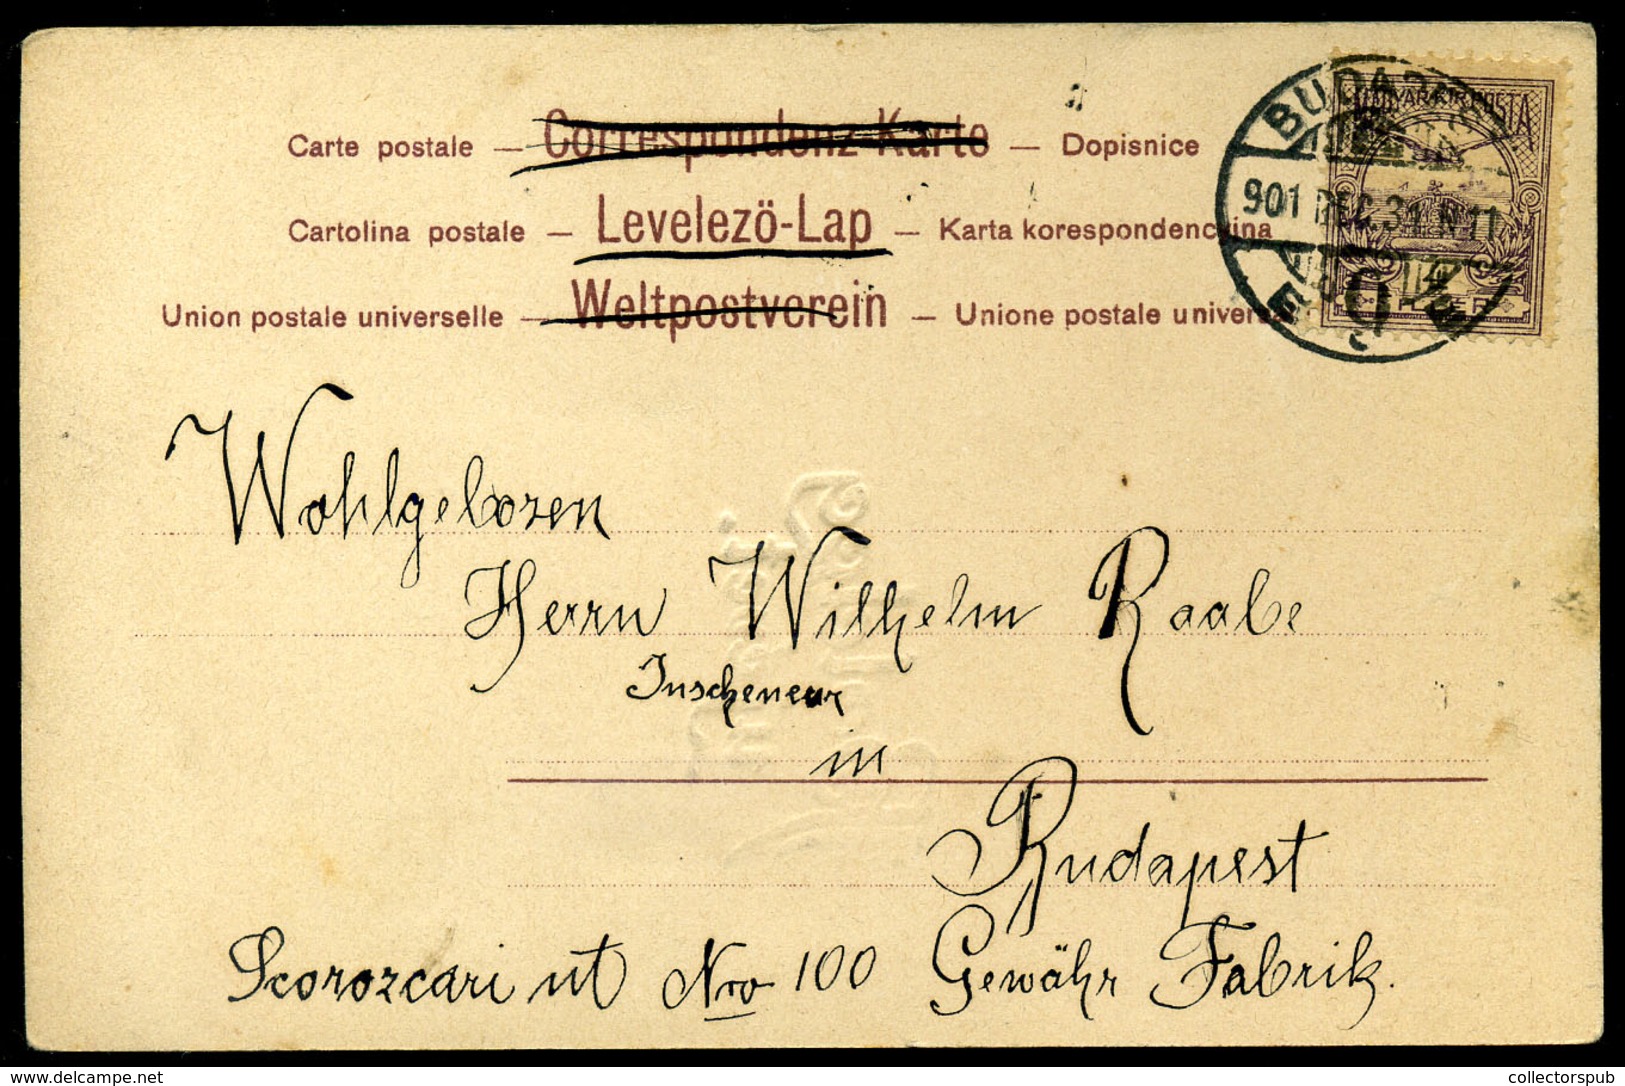 Carte postale — Correspondenz-Karte — Dopisnice
Cartolina postale — Levelezö-Lap — Karta korespondencyina
Union postale universelle — Weltpostverein — Unione postale universa
MAGYAR KIR. POSTA
BUDAPEST
901 DEC. 31 N 11
9
Wohlgeboren
Herrn Wilhelm Raabe
Inscheneur
in
Budapest
Scorozcari ut Nro 100 Gewähr Fabrik.
collectorspub
collectorspub.com